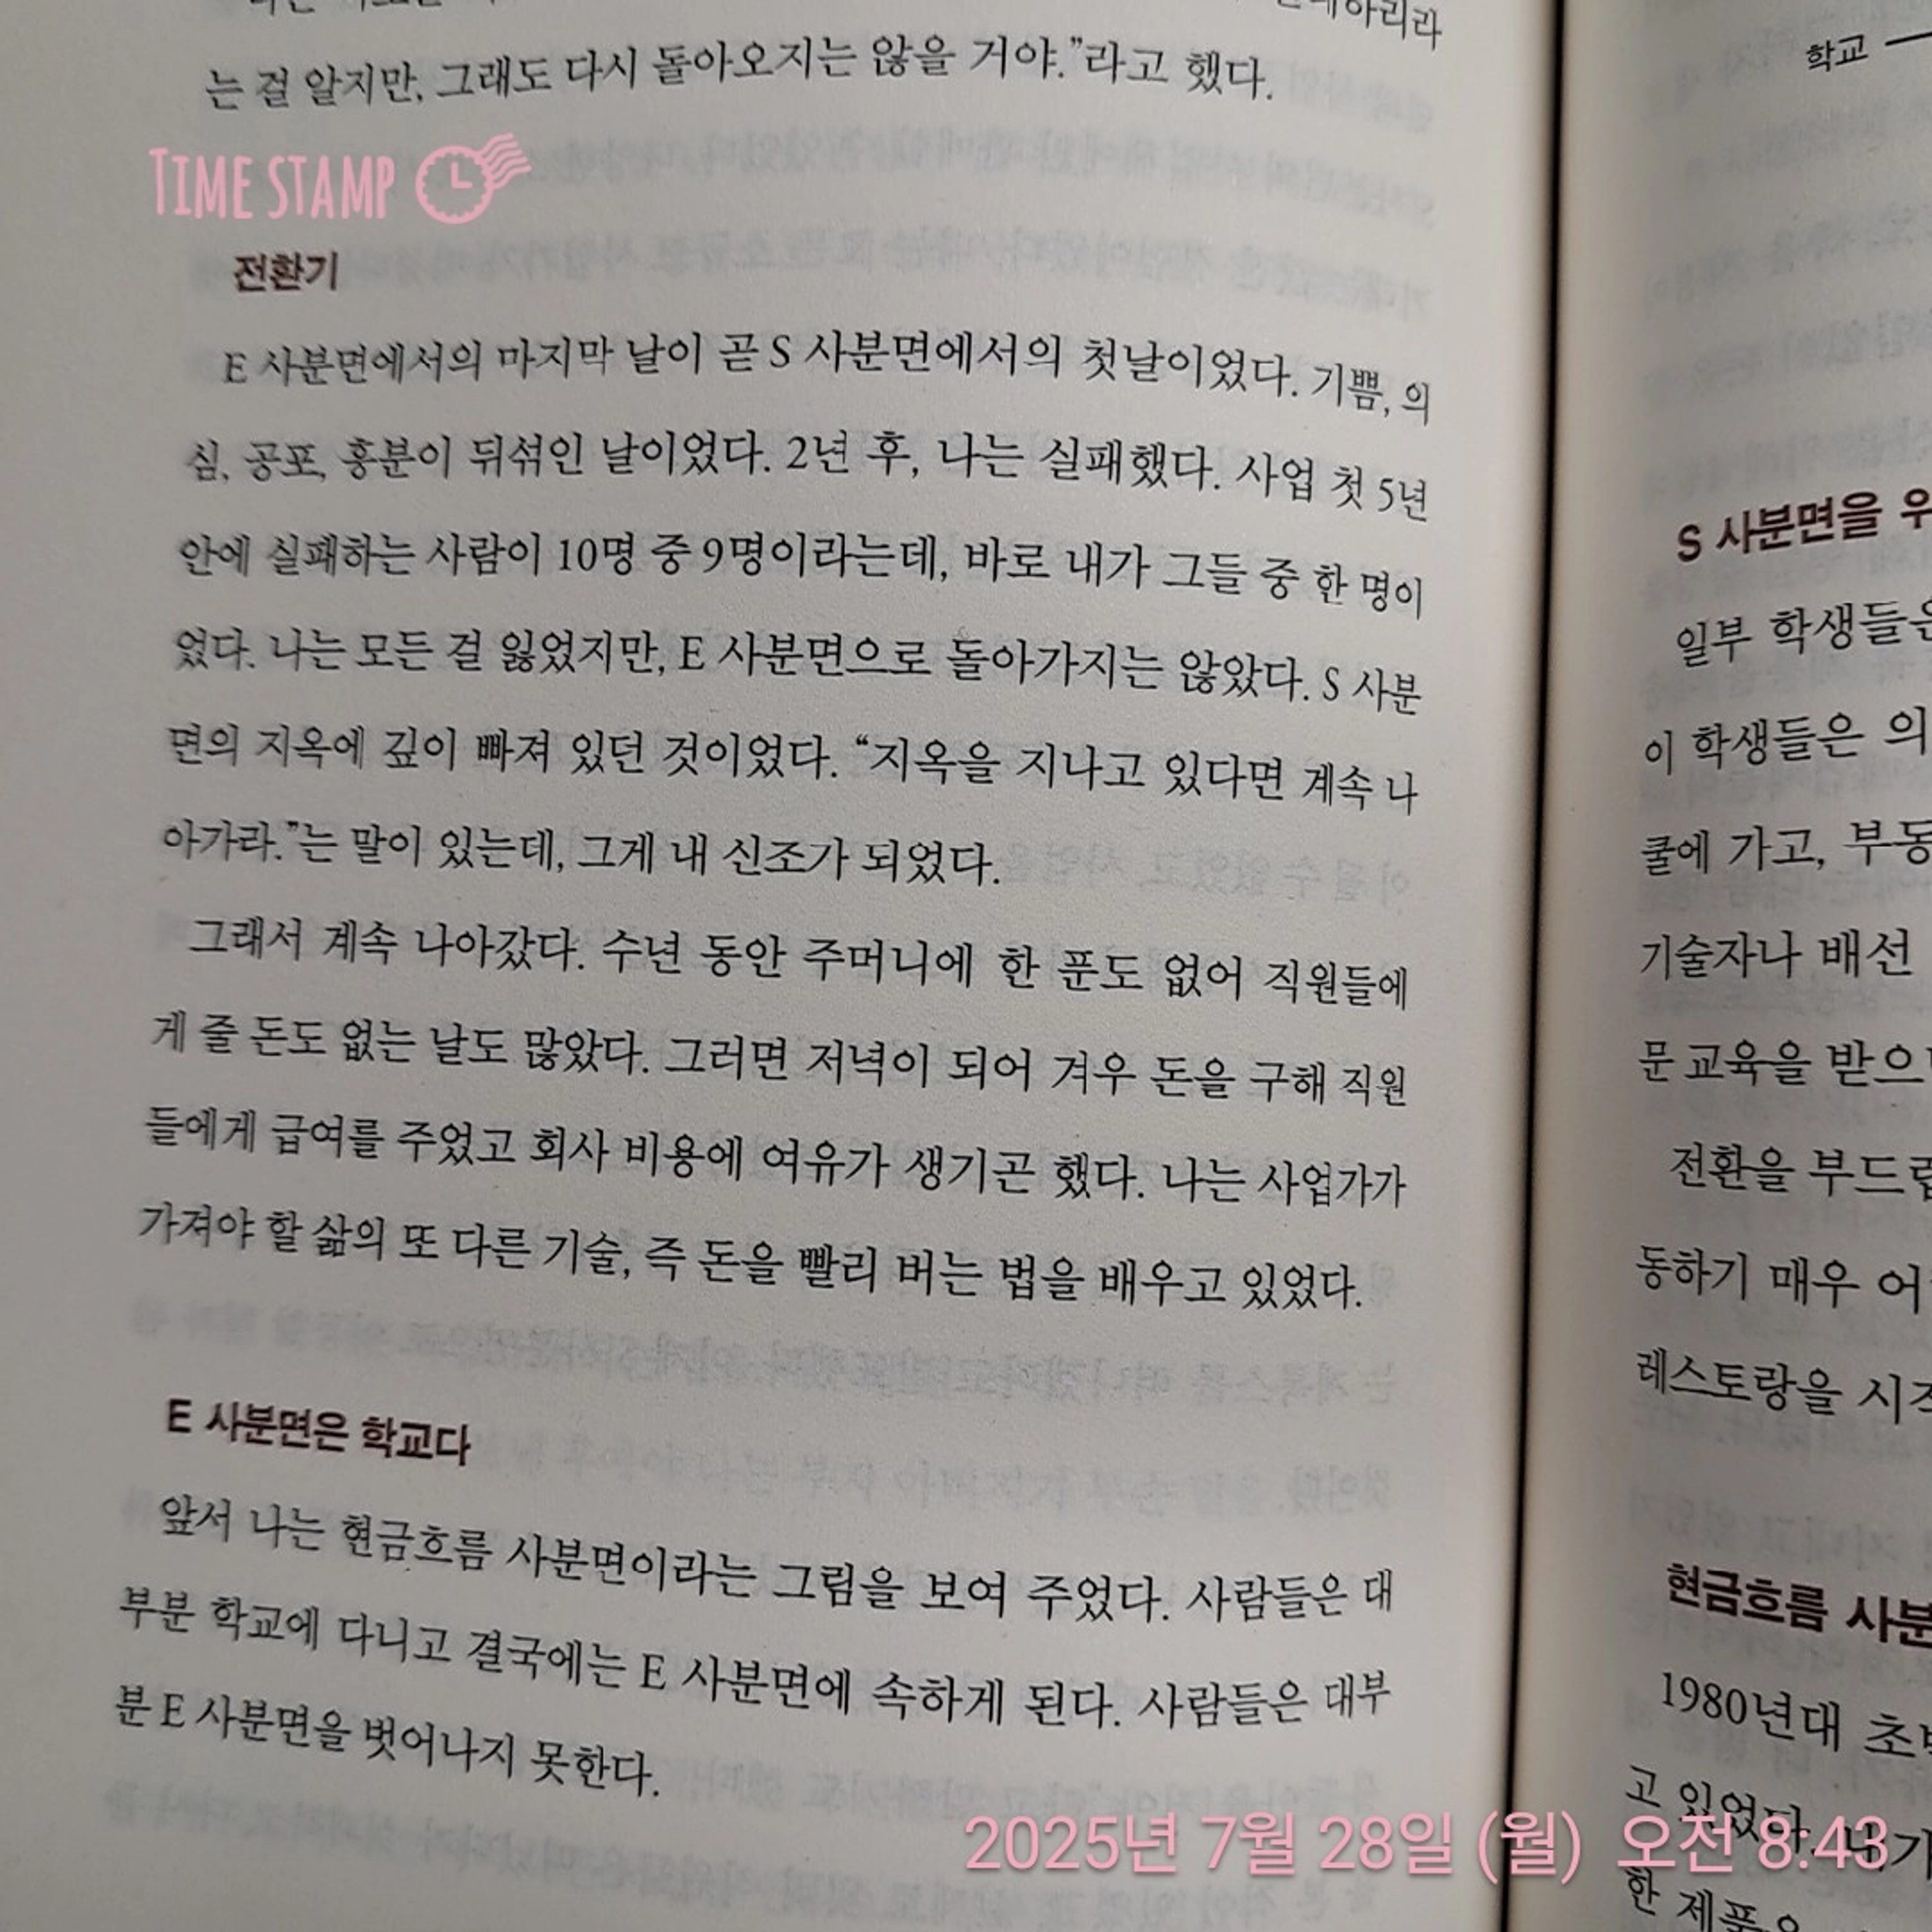 는 걸 알지만, 그래도 다시 돌아오지는 않을 거야."라고 했다.
TIME STAMP
전환기
E 사분면에서의 마지막 날이 곧 S 사분면에서의 첫날이었다. 기쁨, 의
심, 공포, 흥분이 뒤섞인 날이었다. 2년 후, 나는 실패했다. 사업 첫 5년
안에 실패하는 사람이 10명 중 9명이라는데, 바로 내가 그들 중 한 명이
었다. 나는 모든 걸 잃었지만, E 사분면으로 돌아가지는 않았다. S 사분
면의 지옥에 깊이 빠져 있던 것이었다. “지옥을 지나고 있다면 계속 나
아가라.”는 말이 있는데, 그게 내 신조가 되었다.
그래서 계속 나아갔다. 수년 동안 주머니에 한 푼도 없어 직원들에
게 줄 돈도 없는 날도 많았다. 그러면 저녁이 되어 겨우 돈을 구해 직원
들에게 급여를 주었고 회사 비용에 여유가 생기곤 했다. 나는 사업가가
가져야 할 삶의 또 다른 기술, 즉 돈을 빨리 버는 법을 배우고 있었다.
E 사분면은 학교다
앞서 나는 현금흐름 사분면이라는 그림을 보여 주었다. 사람들은 대
부분 학교에 다니고 결국에는 E 사분면에 속하게 된다. 사람들은 대부
분 E 사분면을 벗어나지 못한다.
학교 —
S 사분면을
일부 학생들은
이 학생들은 의
쿨에 가고, 부동
기술자나 배선
문 교육을 받으
전환을 부드럽
동하기 매우 어
레스토랑을 시작
현금흐름 사분
1980년대 초
고 있었다.
한 제품
2025년 7월 28일 (월) 오전 8:43